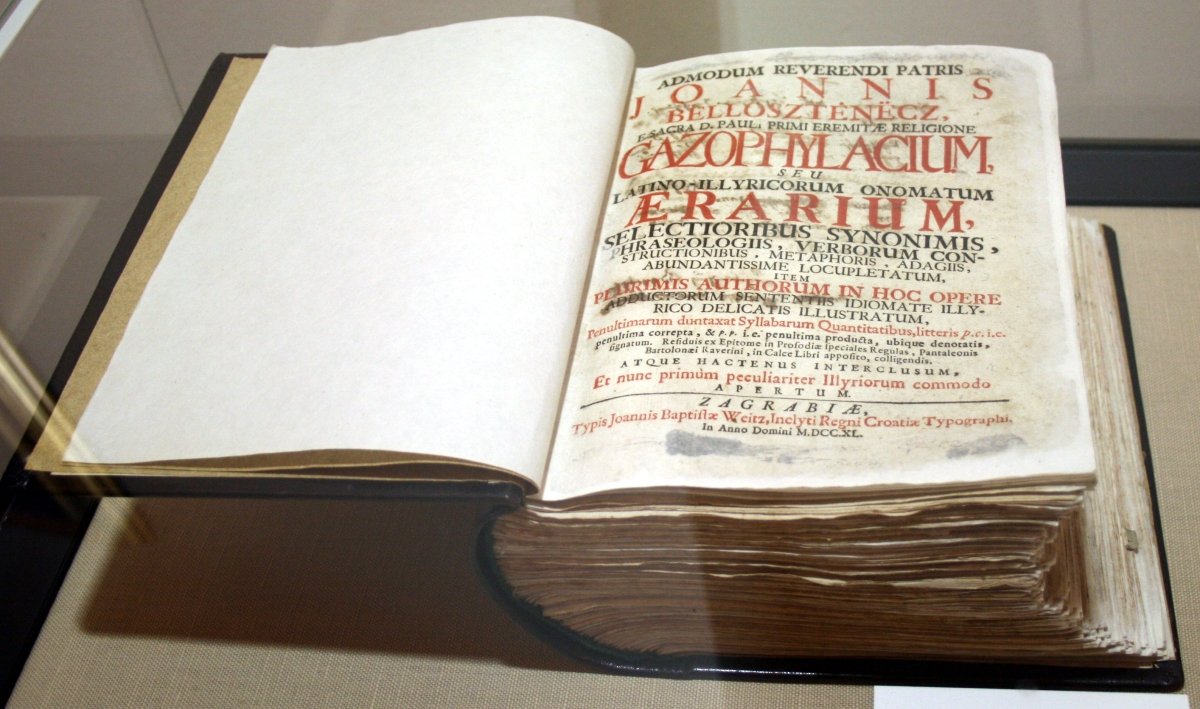 ADMODUM REVERENDI PATRIS
JOANNIS
BELLOSZTENËCZ,
E SACRA D. PAULI PRIMI EREMITÆ RELIGIONE
GAZOPHYLACIUM,
SEU
LATINO-ILLYRICORUM ONOMATUM
ÆRARIUM,
SELECTIORIBUS SYNONIMIS,
PHRASEOLOGIIS, VERBORUM CON-
STRUCTIONIBUS, METAPHORIS, ADAGIIS,
ABUNDANTISSIME LOCUPLETATUM,
ITEM
PLURIMIS AUTHORUM IN HOC OPERE
ADDUCTORUM SENTENTIIS IDIOMATE ILLY-
RICO DELICATIS ILLUSTRATUM,
Penultimarum duntaxat Syllabarum Quantitatibus, litteris p.c. i.e.
penultima correpta, & p.p. i.e. penultima producta, ubique denotatis,
signatum. Residuis ex Epitome in Prosodiæ speciales Regulas, Pantaleonis
Bartolonæi Raverini, in Calce Libri apposito, colligendis.
ATQUE HACTENUS INTERCLUSUM,
Et nunc primùm peculiariter Illyriorum commodo
APERTUM.
ZAGRABIÆ,
Typis Joannis Baptistæ Weitz, Inclyti Regni Croatiæ Typographi,
In Anno Domini M.DCC.XL.